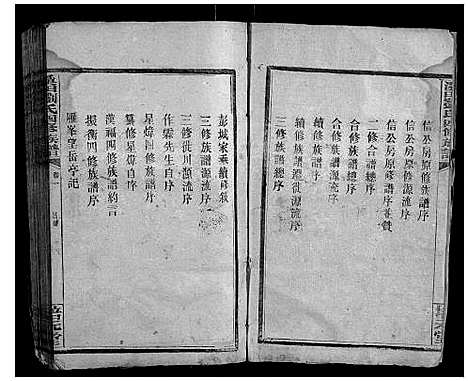 信公房原修族譜序
信公房原修源流序
信公房二修族譜序並贊
合修族譜總序
合修族譜源流序
二修族譜總序
三修族譜序
三修族譜遷徙源流序
彭城家乘續修敘
三修族譜源流序
三修徙川源流序
作霖先生自序
星煒四修族譜序
纂修星煒自序
漢福四修族譜約言
振衡四修族譜序
雁峯望嶽亭記
卷一